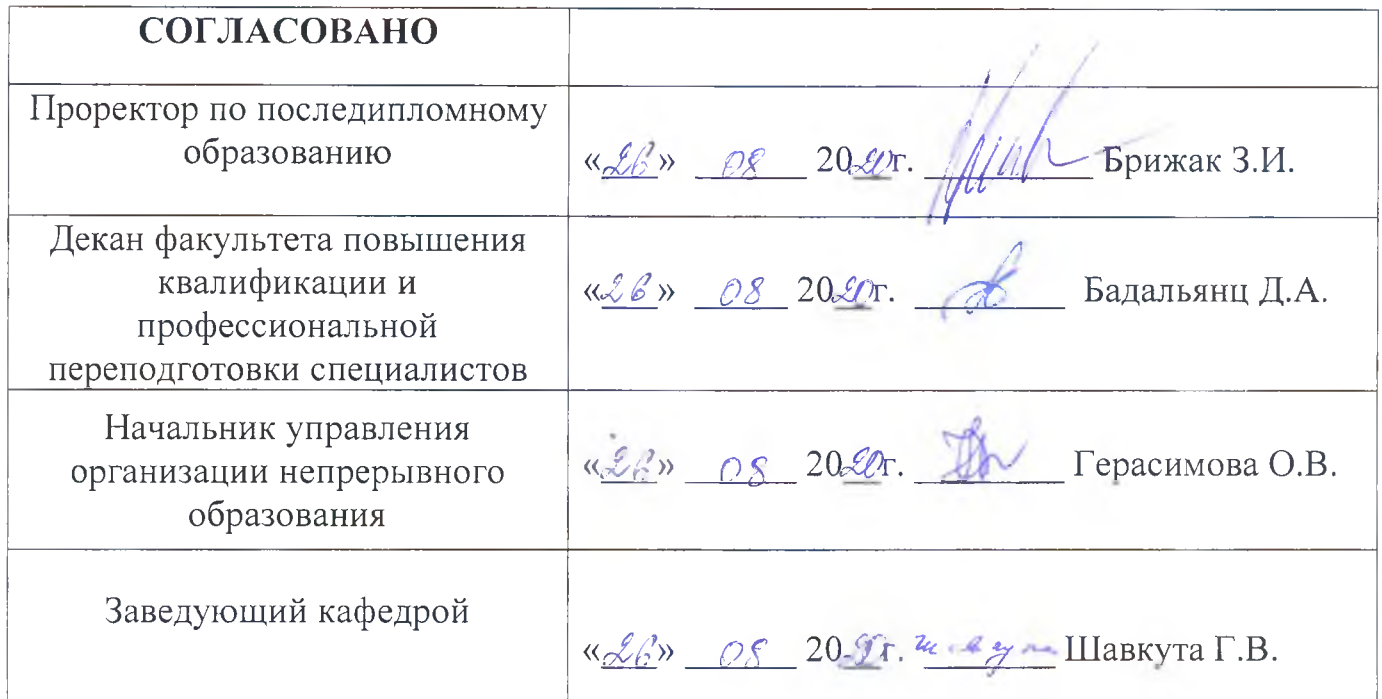 СОГЛАСОВАНО
Проректор по последипломному
образованию
«26» 08 2020г. Брижак З.И.
Декан факультета повышения
квалификации и
профессиональной
переподготовки специалистов
«26» 08 2020г. Бадальянц Д.А.
Начальник управления
организации непрерывного
образования
«26» 08 2020г. Герасимова О.В.
Заведующий кафедрой
«26» 08 20 г. Шавкута Г.В.